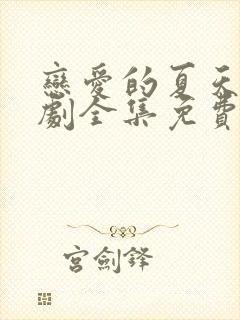 戀愛的夏天
劇全集免費
宮劍鋒